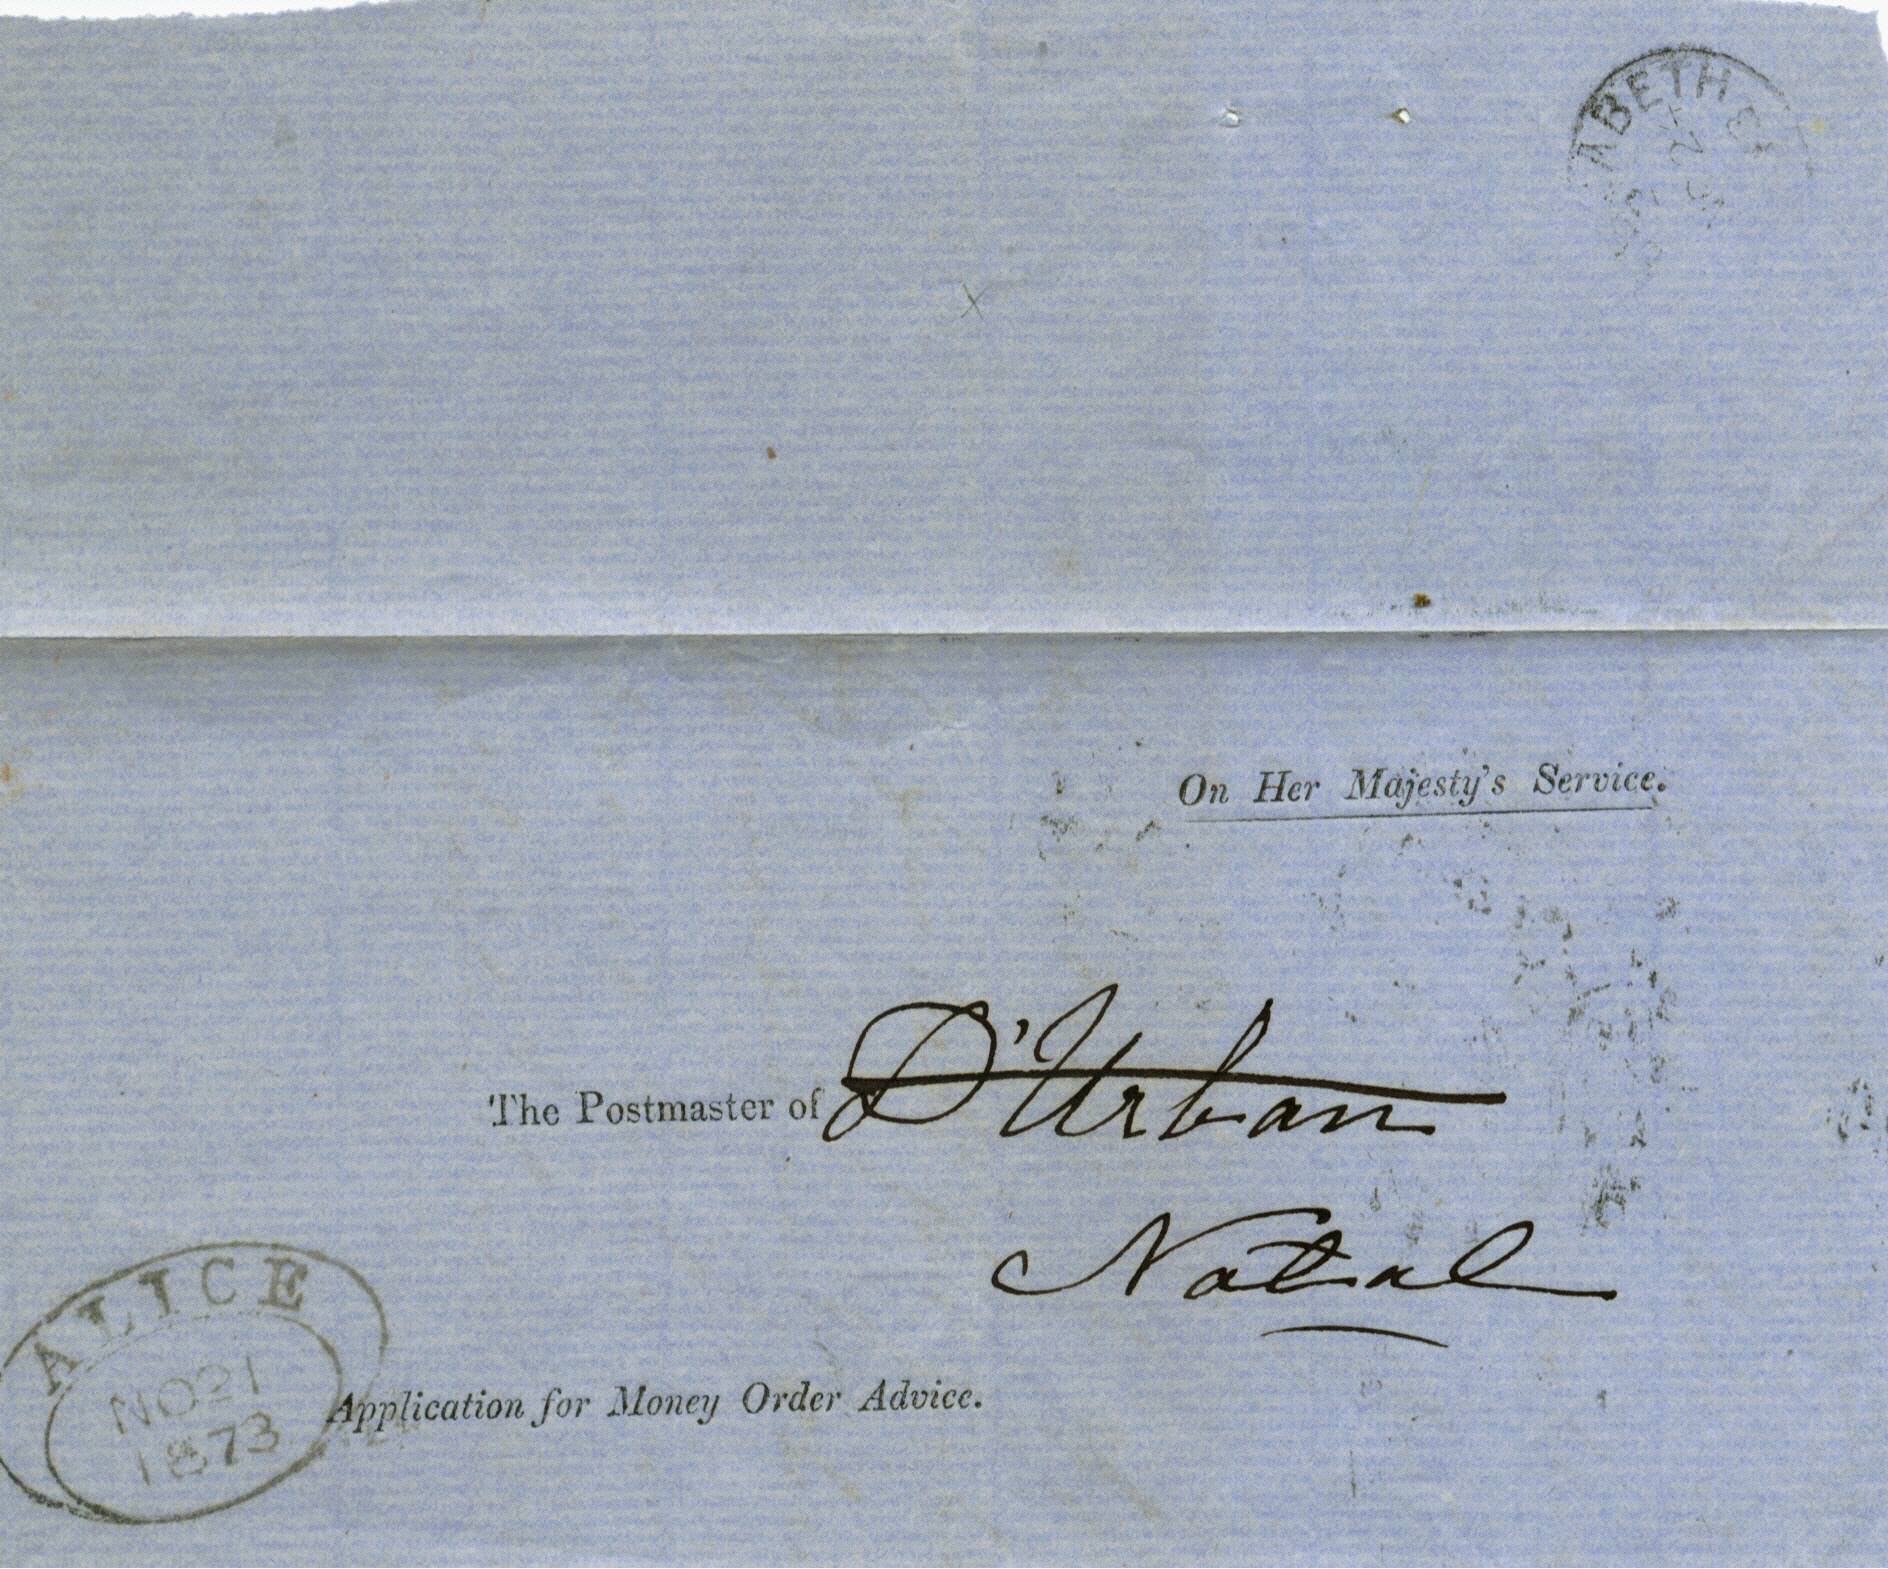 ABETH
On Her Majesty's Service.
The Postmaster of D'Urban
Natal
ALICE
NO 21
1873
Application for Money Order Advice.